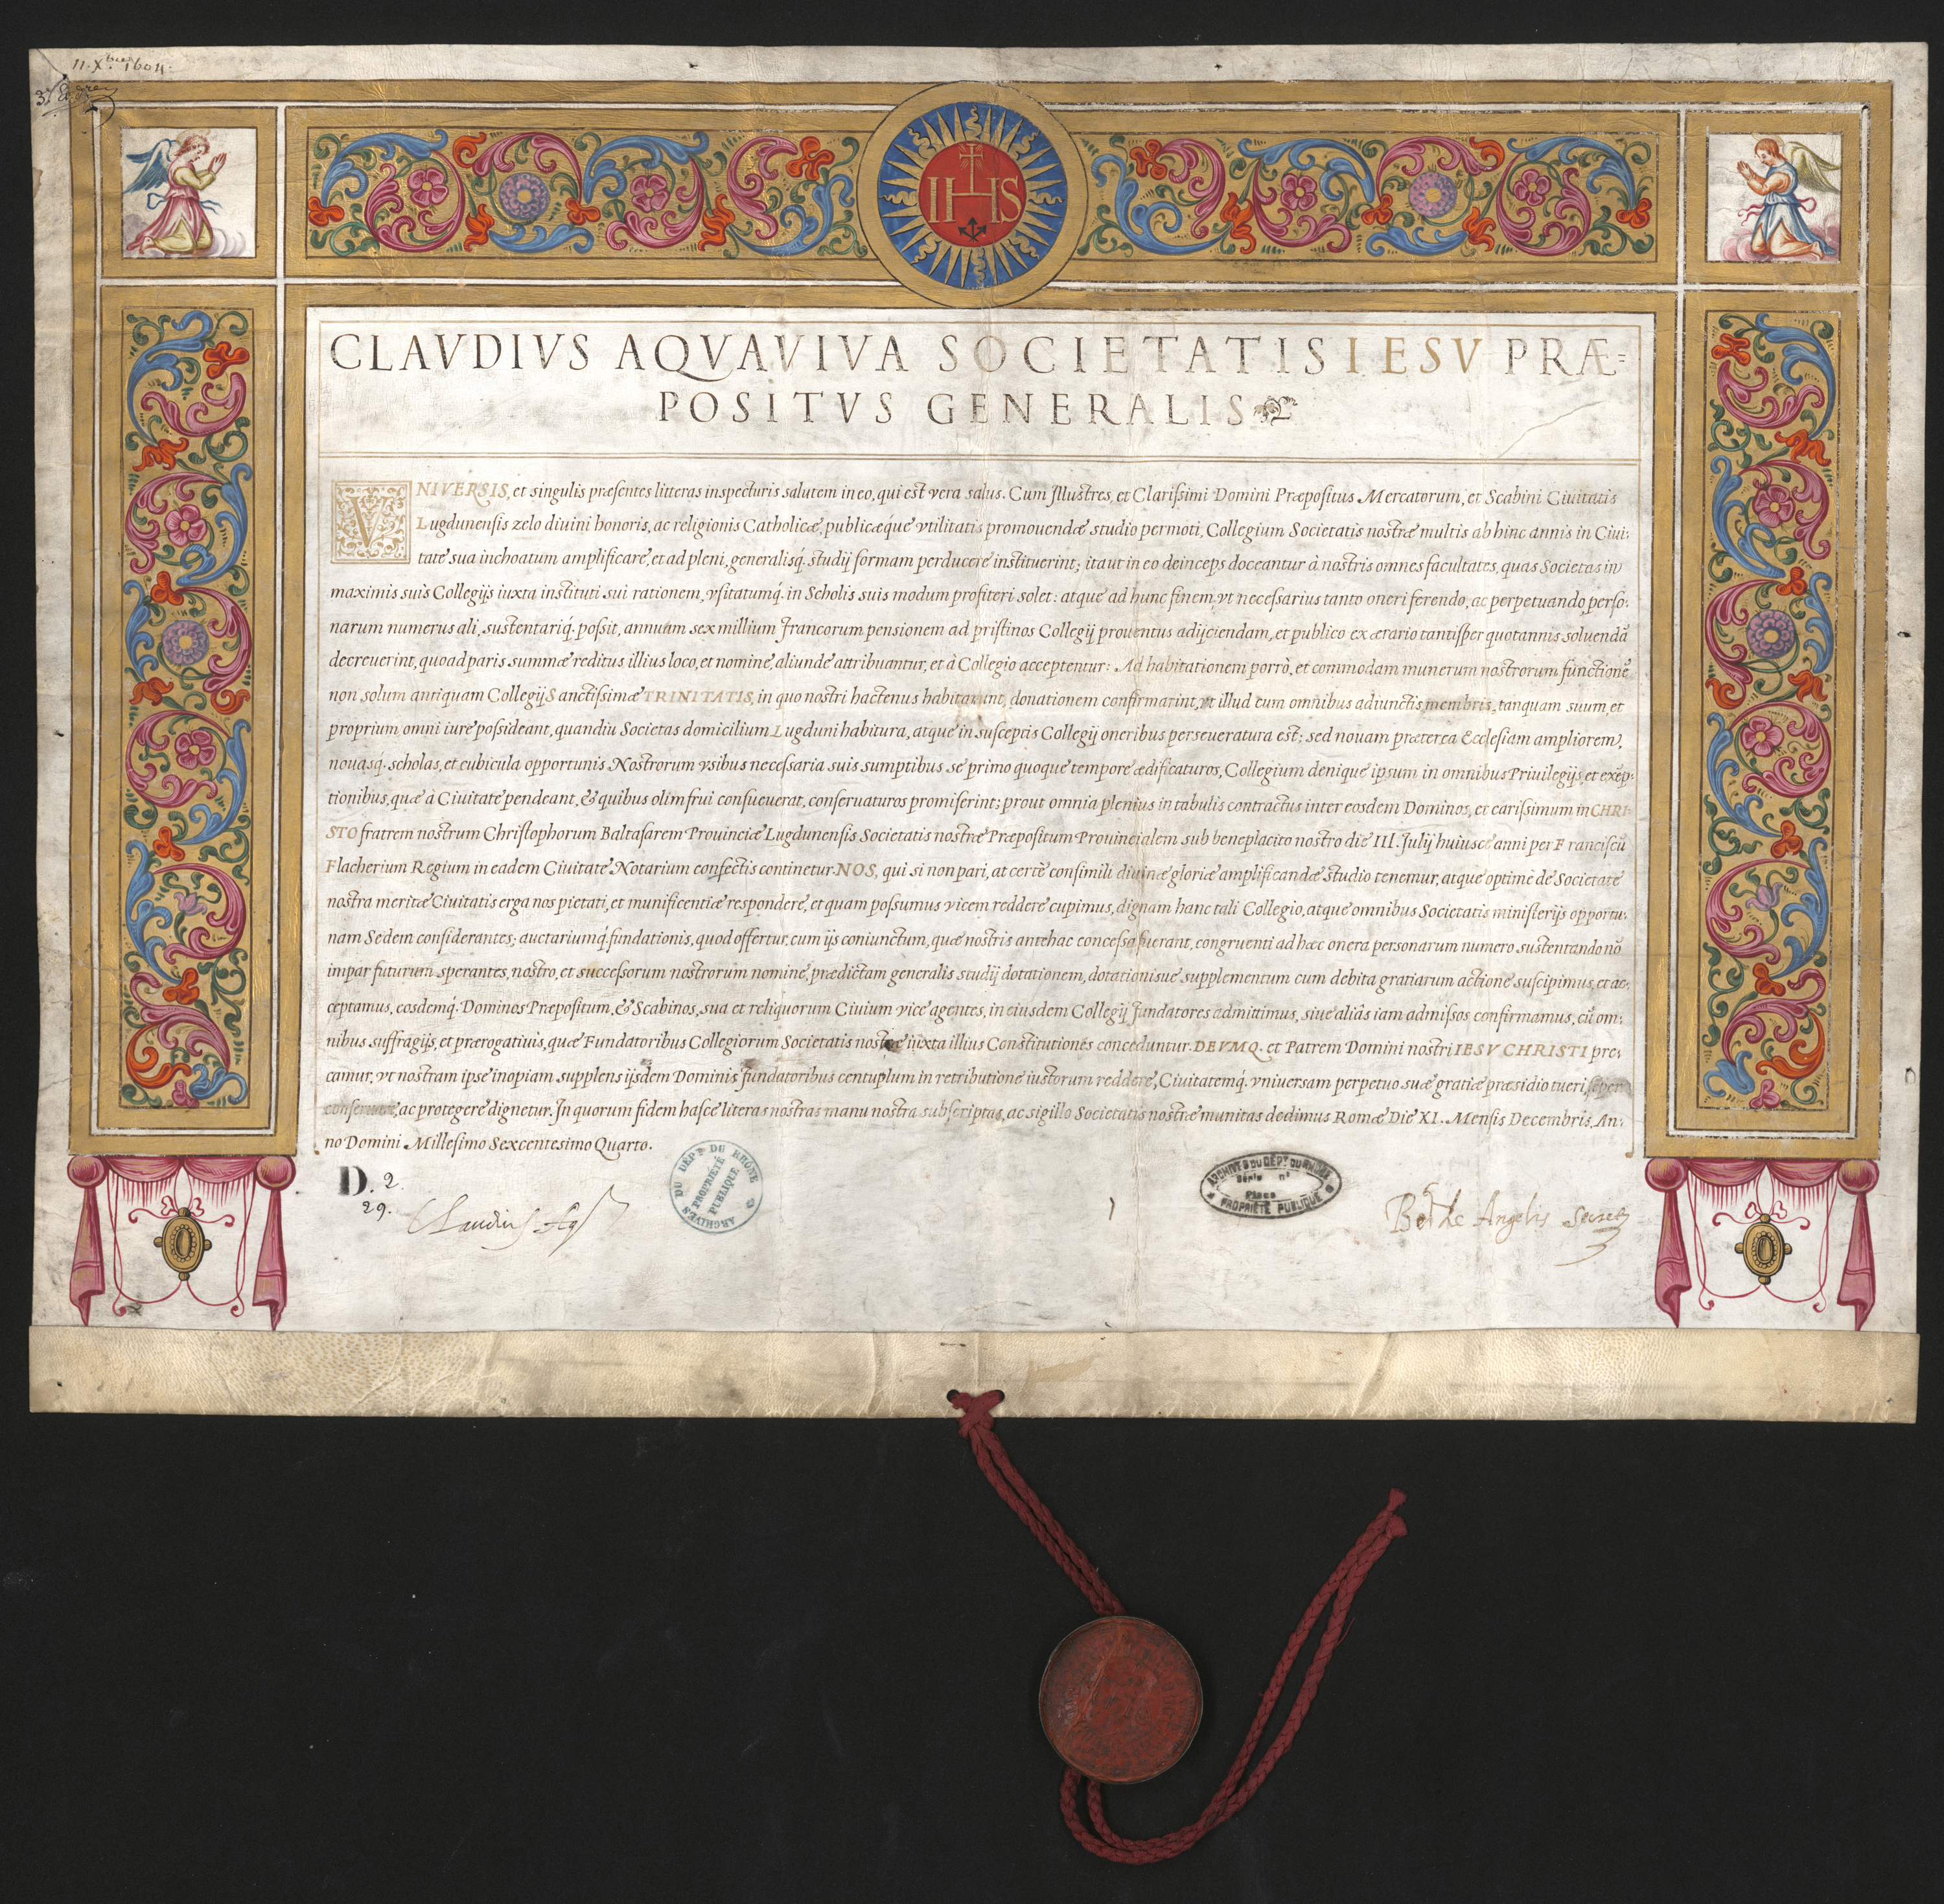 11. Xbre 1604.
IHS
CLAVDIVS AQVAVIVA SOCIETATIS IESV PRÆ=
POSITVS GENERALIS
VNIVERSIS, et singulis præsentes litteras inspecturis salutem in eo, qui est vera salus. Cum Illustres, et Clarissimi Domini Præpositus Mercatorum, et Scabini Ciuitatis
Lugdunensis zelo diuini honoris, ac religionis Catholicæ, publicæque vtilitatis promouendæ studio permoti, Collegium Societatis nostræ multis ab hinc annis in Ciui:
tate sua inchoatum amplificare, et ad pleni, generalisq́. studij formam perducere instituerint; ita ut in eo deinceps doceantur à nostris omnes facultates, quas Societas in
maximis suis Collegijs iuxta instituti sui rationem, vsitatumq́. in Scholis suis modum profiteri solet: atque ad hunc finem, vt necessarius tanto oneri ferendo, ac perpetuando perso:
narum numerus ali, sustentariq́. possit, annuam sex millium Francorum pensionem ad pristinos Collegij prouentus adijciendam, et publico ex ærario tantisper quotannis soluendã
decreuerint, quoad paris summæ reditus illius loco, et nomine, aliunde attribuantur, et à Collegio acceptentur: Ad habitationem porrò, et commodam munerum nostrorum functionẽ
non solum antiquam Collegij Sanctissimæ TRINITATIS, in quo nostri hactenus habitarunt, donationem confirmarint, vt illud cum omnibus adiunctis membris, tanquam suum, et
proprium omni iure possideant, quandiu Societas domicilium Lugduni habitura, atque in susceptis Collegij oneribus perseueratura est; sed nouam præterea Ecclesiam ampliorem,
nouasq́. scholas, et cubicula opportunis Nostrorum vsibus necessaria suis sumptibus se primo quoque tempore ædificaturos, Collegium denique ipsum in omnibus Priuilegijs, et exẽp:
tionibus, quæ à Ciuitate pendeant, & quibus olim frui consueuerat, conseruaturos promiserint; prout omnia plenius in tabulis contractus inter eosdem Dominos, et carissimum in CHRI:
STO fratrem nostrum Christophorum Baltasarem Prouinciæ Lugdunensis Societatis nostræ Præpositum Prouincialem sub beneplacito nostro die III. Julij huiusce anni per Franciscũ
Flacherium Regium in eadem Ciuitate Notarium confectis continetur. NOS, qui si non pari, at certè consimili diuinæ gloriæ amplificandæ studio tenemur, atque optimè de Societate
nostra meritæ Ciuitatis erga nos pietati, et munificentiæ respondere, et quam possumus vicem reddere cupimus, dignam hanc tali Collegio, atque omnibus Societatis ministerijs opportu:
nam Sedem considerantes; auctariumq́. fundationis, quod offertur, cum ijs coniunctum, quæ nostris antehac concessa fuerant, congruenti ad hæc onera personarum numero sustentando nõ
impar futurum sperantes, nostro, et successorum nostrorum nomine, prædictam generalis studij dotationem, dotationisue supplementum cum debita gratiarum actione suscipimus, et ac:
ceptamus, eosdemq́. Dominos Præpositum, & Scabinos, sua et reliquorum Ciuium vice agentes, in eiusdem Collegij fundatores admittimus, siue aliâs iam admissos confirmamus, cũ om:
nibus suffragijs, et prærogatiuis, quæ Fundatoribus Collegiorum Societatis nostræ iuxta illius Constitutiones conceduntur. DEVMQ. et Patrem Domini nostri IESV CHRISTI pre:
camur, vt nostram ipse inopiam supplens ijsdem Dominis fundatoribus centuplum in retributione iustorum reddere, Ciuitatemq́. vniuersam perpetuo suæ gratiæ præsidio tueri,
conseruare, ac protegere dignetur. In quorum fidem hasce literas nostras manu nostra subscriptas, ac sigillo Societatis nostræ munitas dedimus Romæ Die XI. Mensis Decembris. An:
no Domini Millesimo Sexcentesimo Quarto.
D. 2.
29.
Claudius Aq
ARCHIVES DU DÉPt DU RHÔNE
PROPRIÉTÉ
PUBLIQUE
ARCHIVES DU DÉPt DU RHÔNE
Série n°
Place
PROPRIÉTÉ PUBLIQUE
de Angelis Secret